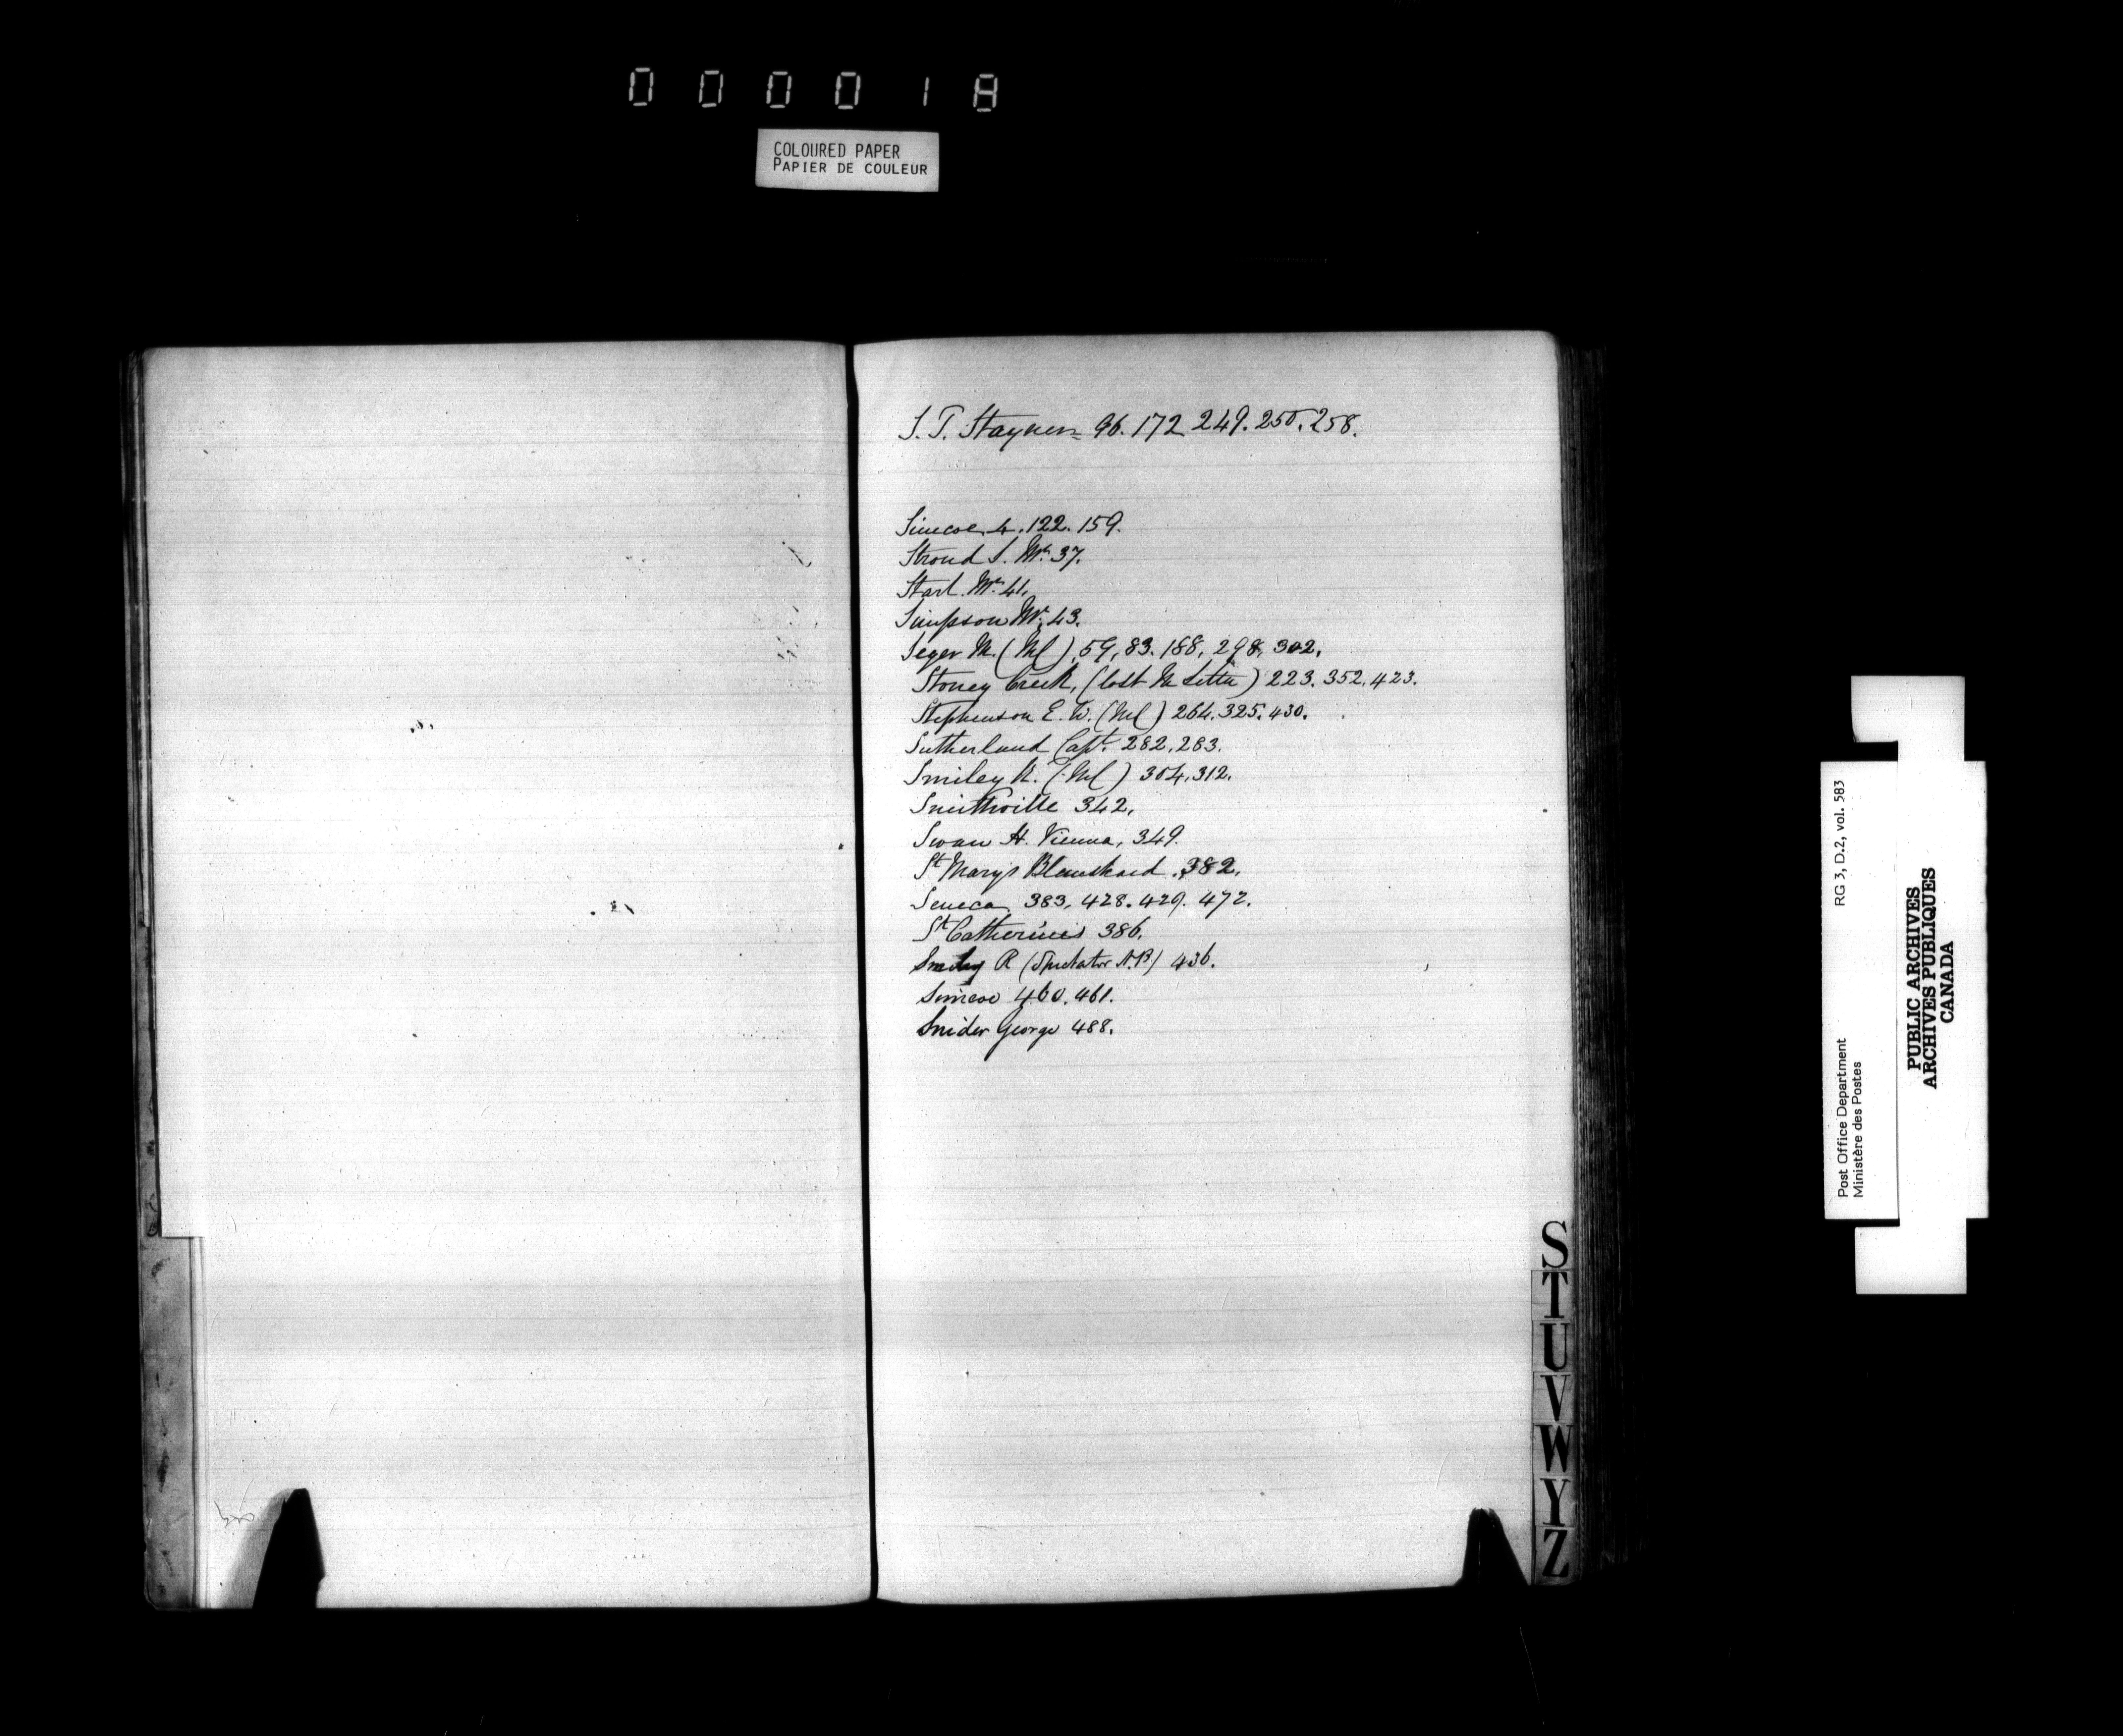 000018
COLOURED PAPER
PAPIER DE COULEUR
S. T. Stayner 96. 172 249. 250. 258.
Simcoe 4. 122. 159.
Stroud S. Mr. 37.
Start. Mr. 41.
Simpson Mr. 43.
Seger M. (Ml) 59, 83. 188, 298, 302.
Stoney Creek, (lost M Letter) 223. 352. 423.
Stephenson E. W. (Ml) 264. 325. 430.
Sutherland Capt. 282. 283.
Smiley R. (Ml) 304. 312.
Smithville 342,
Swan H. Vienna, 349.
St Marys Blanshard. 382.
Seneca 383, 428. 429. 472.
St Catherines 386.
Smiley R (Spectator N.P.) 436.
Simcoe 460. 461.
Snider George 488.
S
T
U
V
W
Y
Z
RG 3, D.2, vol. 583
Post Office Department
Ministère des Postes
PUBLIC ARCHIVES
ARCHIVES PUBLIQUES
CANADA